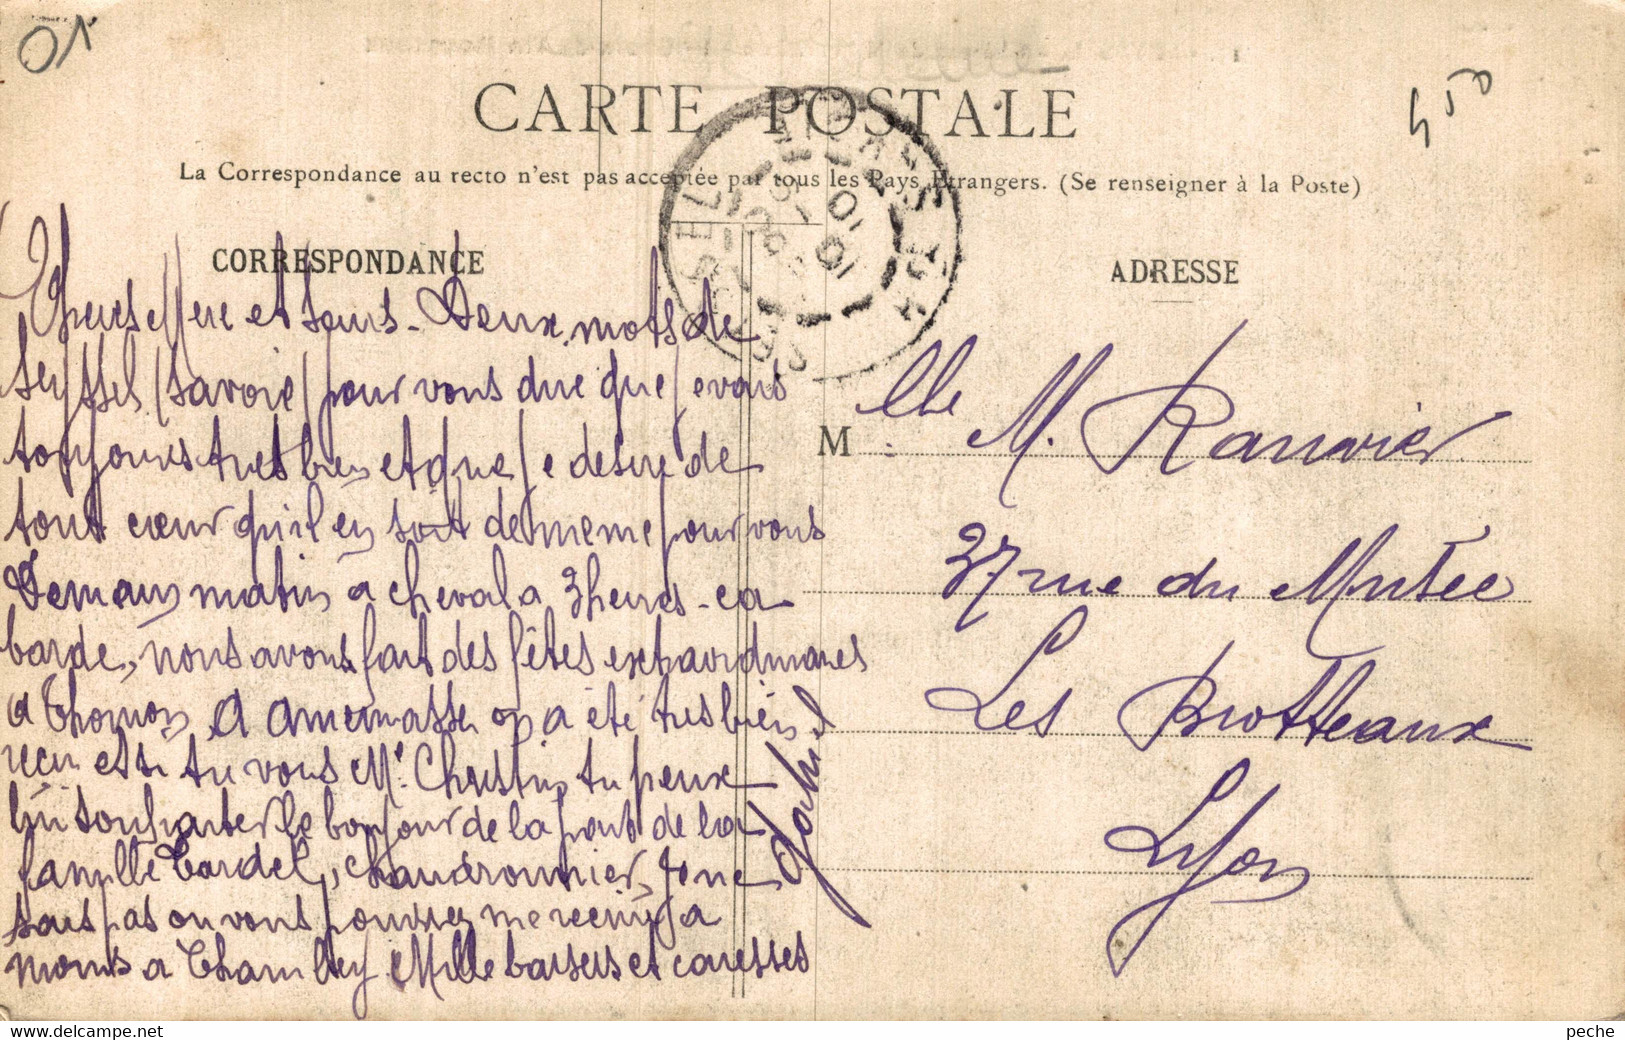 01
450
CARTE POSTALE
La Correspondance au recto n'est pas acceptée par tous les Pays Etrangers. (Se renseigner à la Poste)
CORRESPONDANCE
Chers Mere et Sœurs. Deux mots de
Seyssel (Savoie) pour vous dire que je vais
toujours tres bien et que je desire de
tout cœur qu'il en soit de meme pour vous
Demain matin a cheval a 3 heures - ca
barde, nous avons fait des fêtes extraordinaires
a Thonon, a Annemasse on a été tres bien
recu et si tu vois Mr Christin tu peux
lui souhaiter le bonjour de la part de la
famille Tardel, Chaudronnier, Je ne
sais pas ou vous pourrez me recrire a
moins a Mille baisers et caresses
ADRESSE
M lle M. Ranvier
37 rue du Musée
Les Brotteaux
Lyon
SEYSSEL
peche
www.delcampe.net